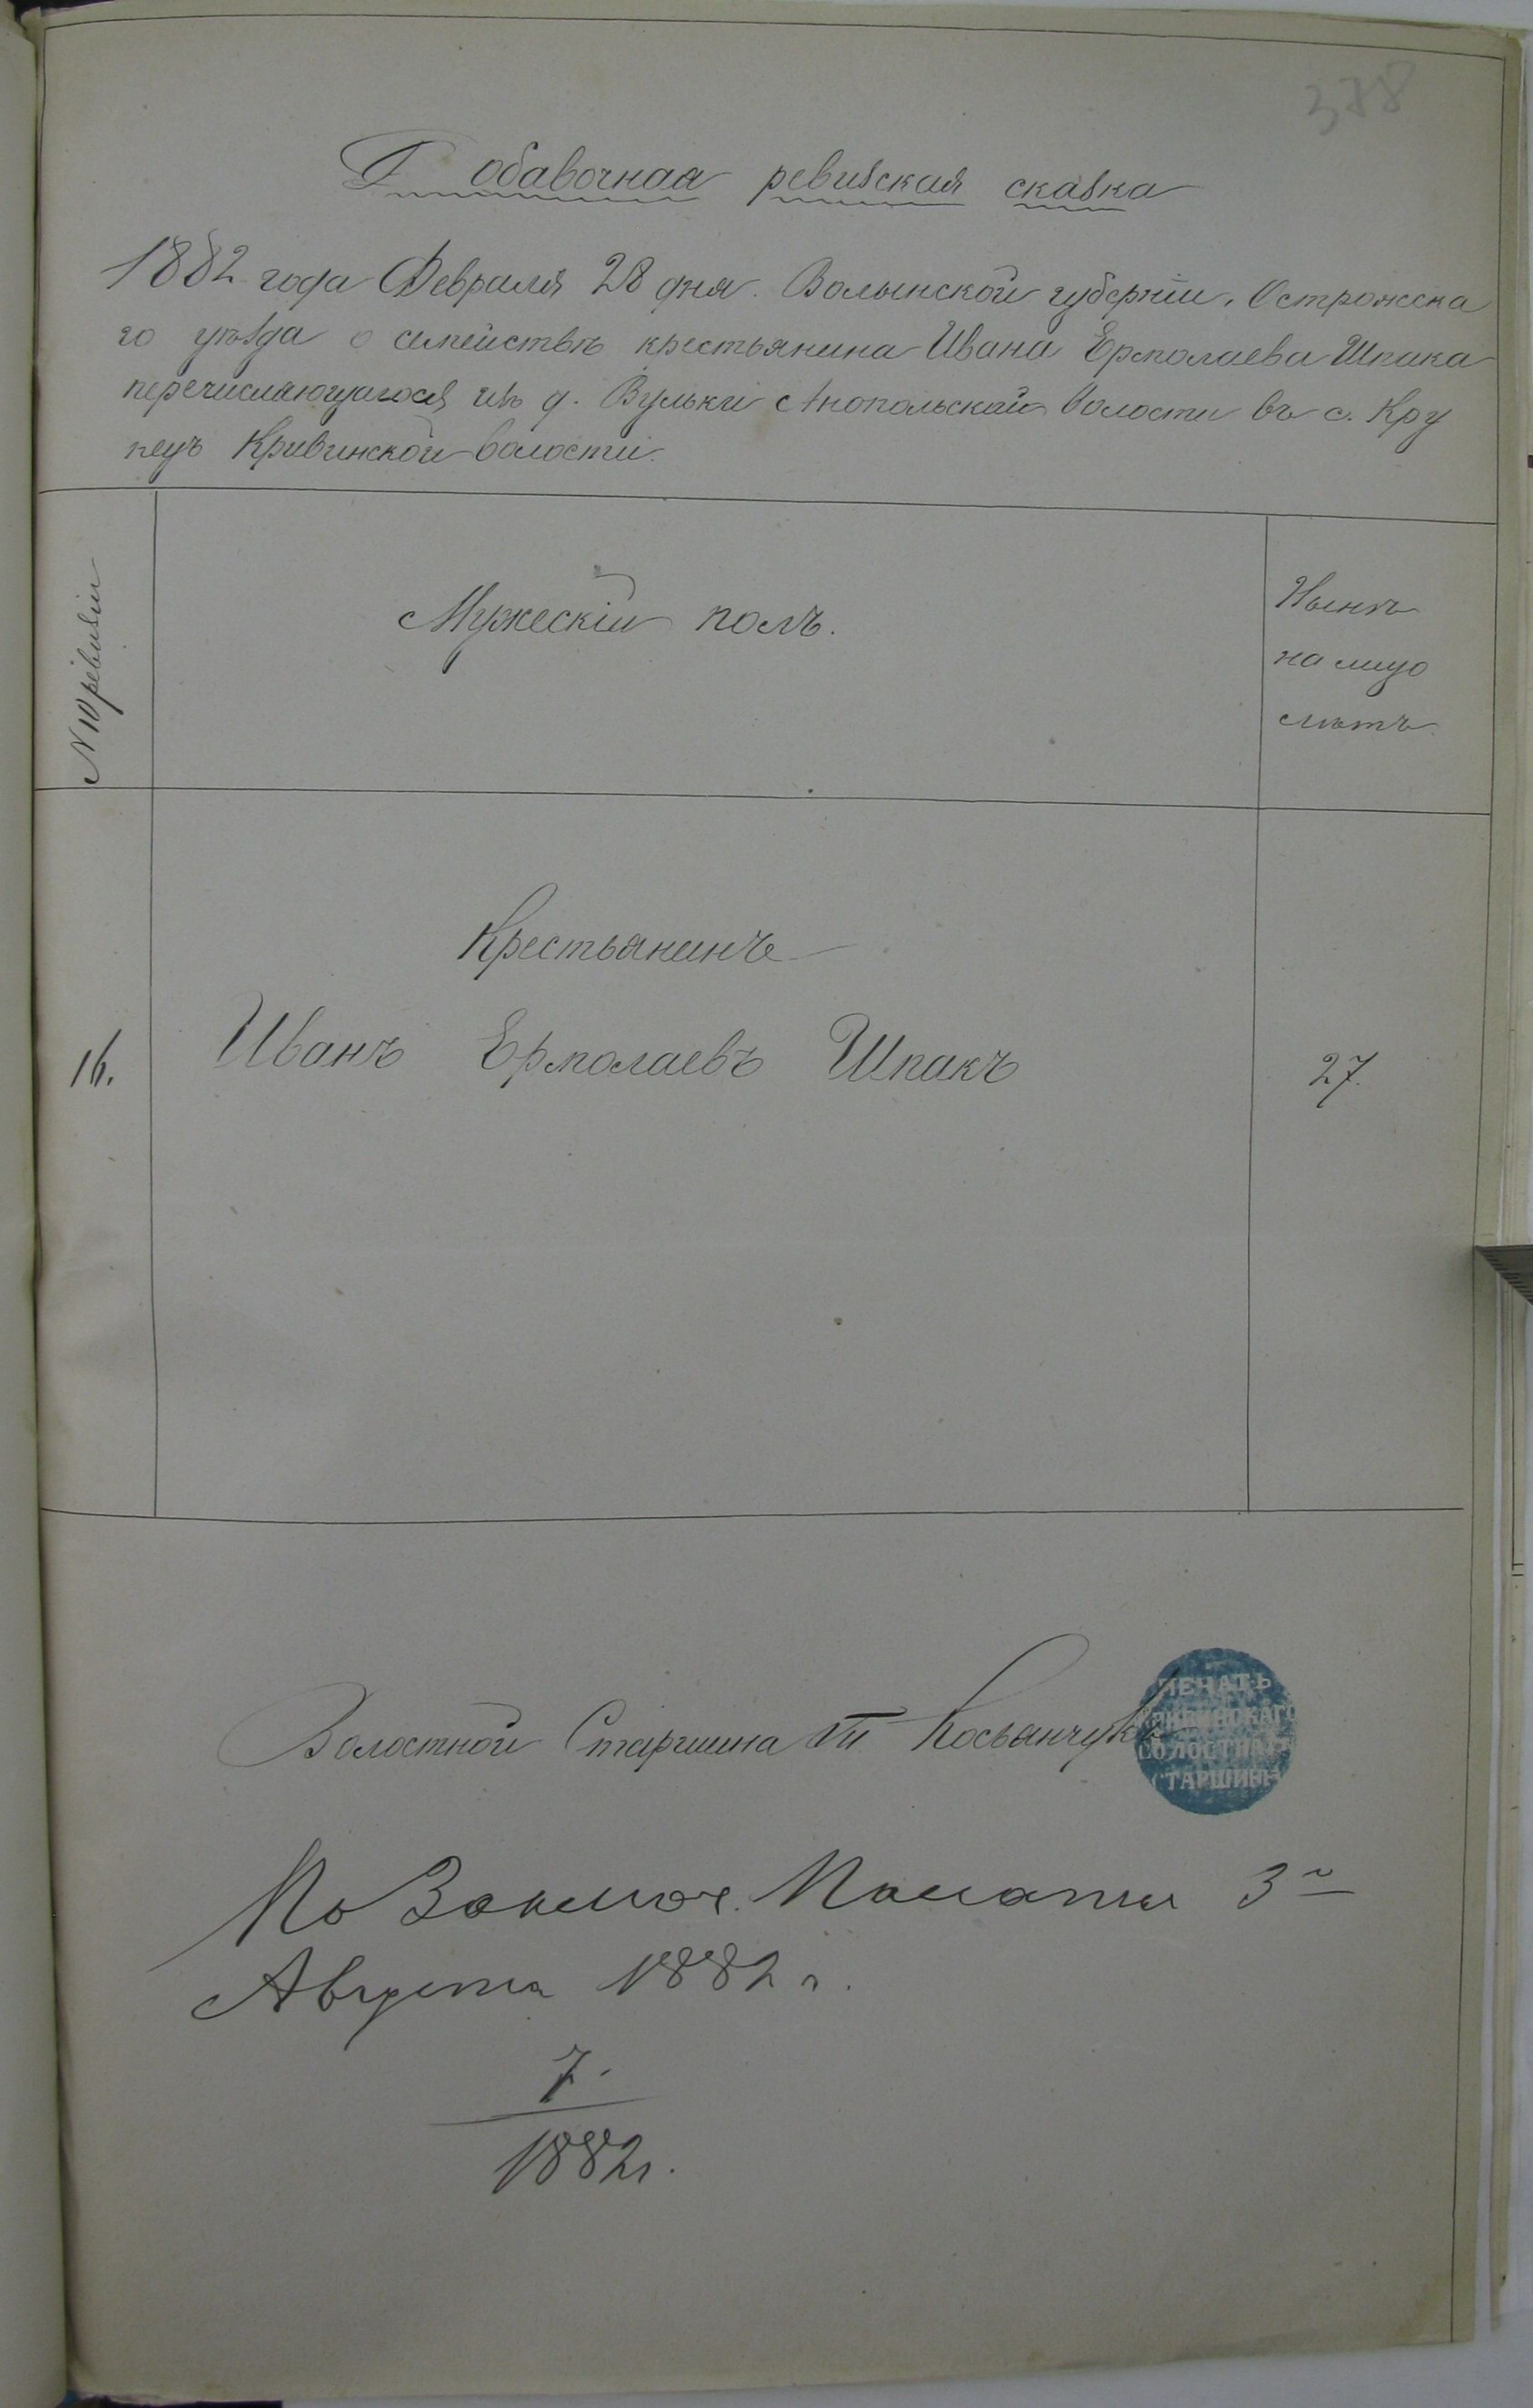 378
Добавочная ревизская сказка
1882 года Февраля 28 дня. Волынской губерніи, Острожска
го уѣзда о семействѣ крестьянина Ивана Ермолаева Шпака
перечисляющагося изъ д. Вульки Анопольской волости въ с. Кру
пецъ Кривинской волости.
№ 10 ревизіи
Мужескій полъ.
Нынѣ
на лицо
лѣтъ.
Крестьянинъ
16. Иванъ Ермолаевъ Шпакъ 27.
Волостной Старшина Косьянчукъ
ПЕЧАТЬ
ВОЛОСТНАГО
СТАРШИНЫ
По Заключ. Палаты 3го
Августа 1882 г.
7.
1882г.